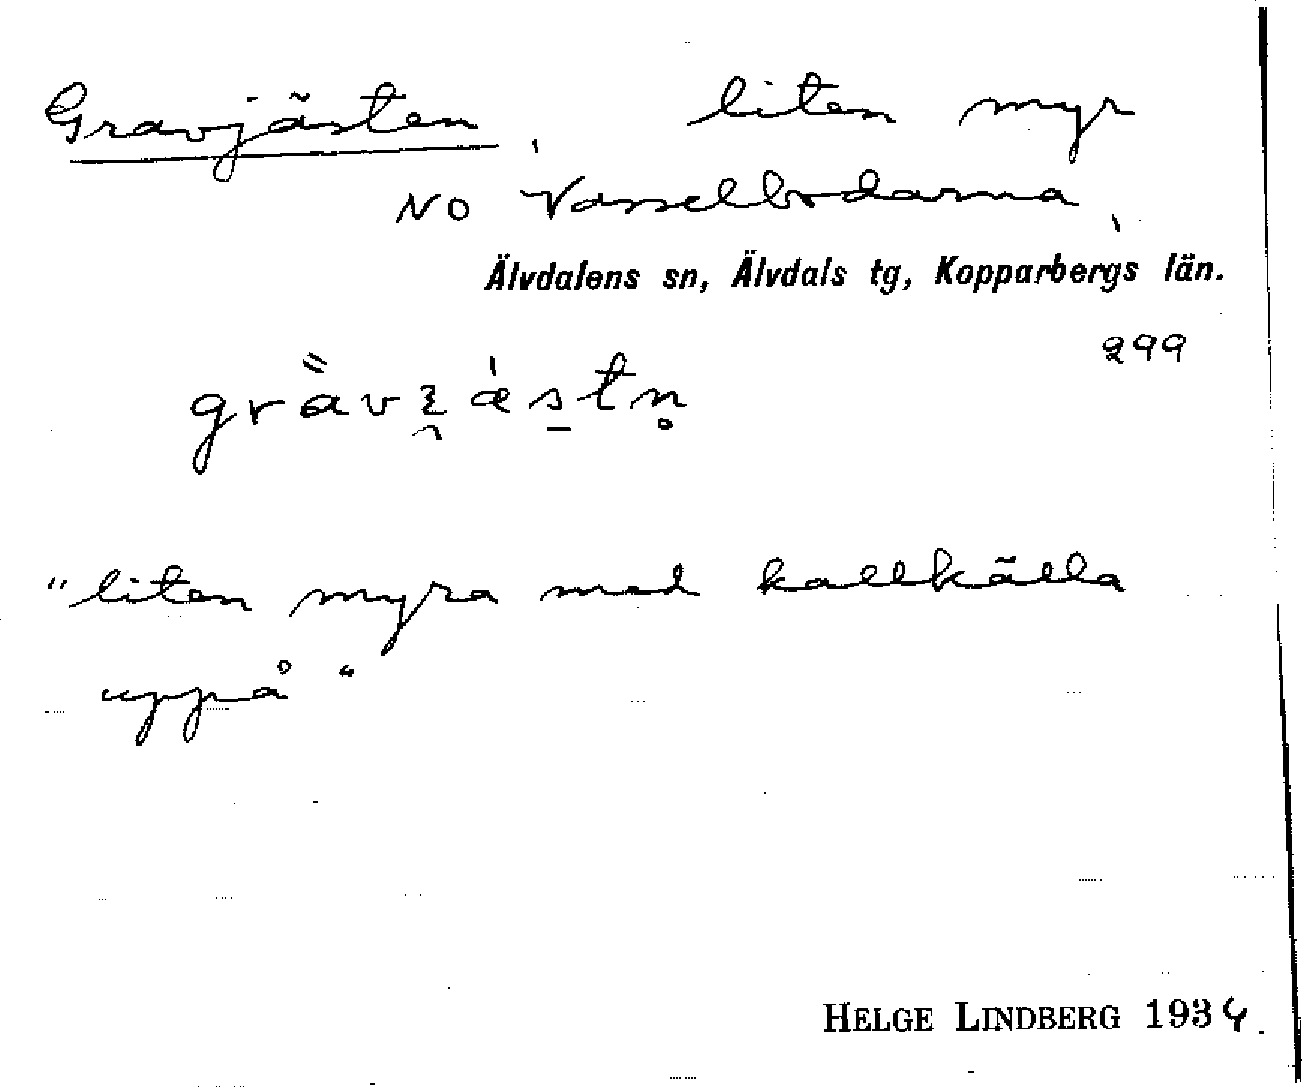 Gravjästen, liten myr
NO Vasselbodarna,
Älvdalens sn, Älvdals tg, Kopparbergs län.
299
"liten myra med kallkälla
uppå"
HELGE LINDBERG 1934.